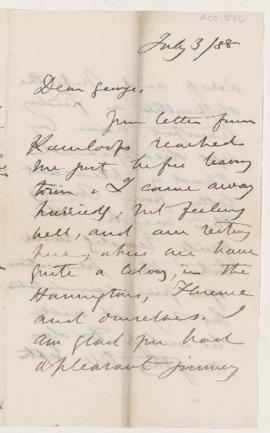 ACC. 976
July 3/88
Dear George,
Your letter from
Kamloops reached
me just before leaving
town & I came away
hurriedly, not feeling
well, and am resting
here, where we have
quite a colony, in the
Harringtons, Florence
and ourselves. I
am glad you had
a pleasant journey